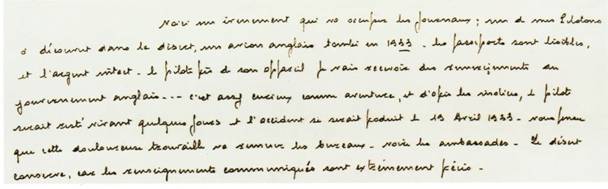 Voici un évenement qui va occuper les journaux ; un de mes Pelotons
a découvert dans le désert, un avion anglais tombé en 1933. les passeports sont lisibles,
et l'argent intact. le pilote près de son appareil je vais recevoir des renseignements du
gouvernement anglais --- c'est assez curieux comme aventure, et d'après les indices, le pilote
serait resté vivant quelques jours et l'accident se serait produit le 13 Avril 1933. vous pensez
que cette douloureuse trouvaille va remuer les bureaux. voire les ambassades. Le désert
conserve, car les renseignements communiqués sont extrêmement précis.